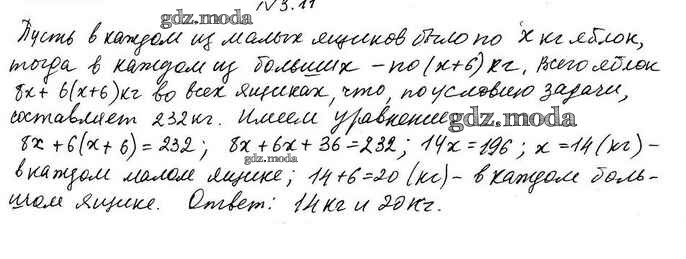 №3.11
Пусть в каждом из малых ящиков было по x кг яблок,
тогда в каждом из больших – по (x+6) кг. Всего яблок
8x+6(x+6) кг во всех ящиках, что, по условию задачи,
составляет 232 кг. Имеем уравнение
8x+6(x+6)=232; 8x+6x+36=232; 14x=196; x=14 (кг) –
в каждом малом ящике; 14+6=20 (кг) – в каждом боль-
шом ящике. Ответ: 14 кг и 20 кг.
gdz.moda
gdz.moda
gdz.moda
gdz.moda